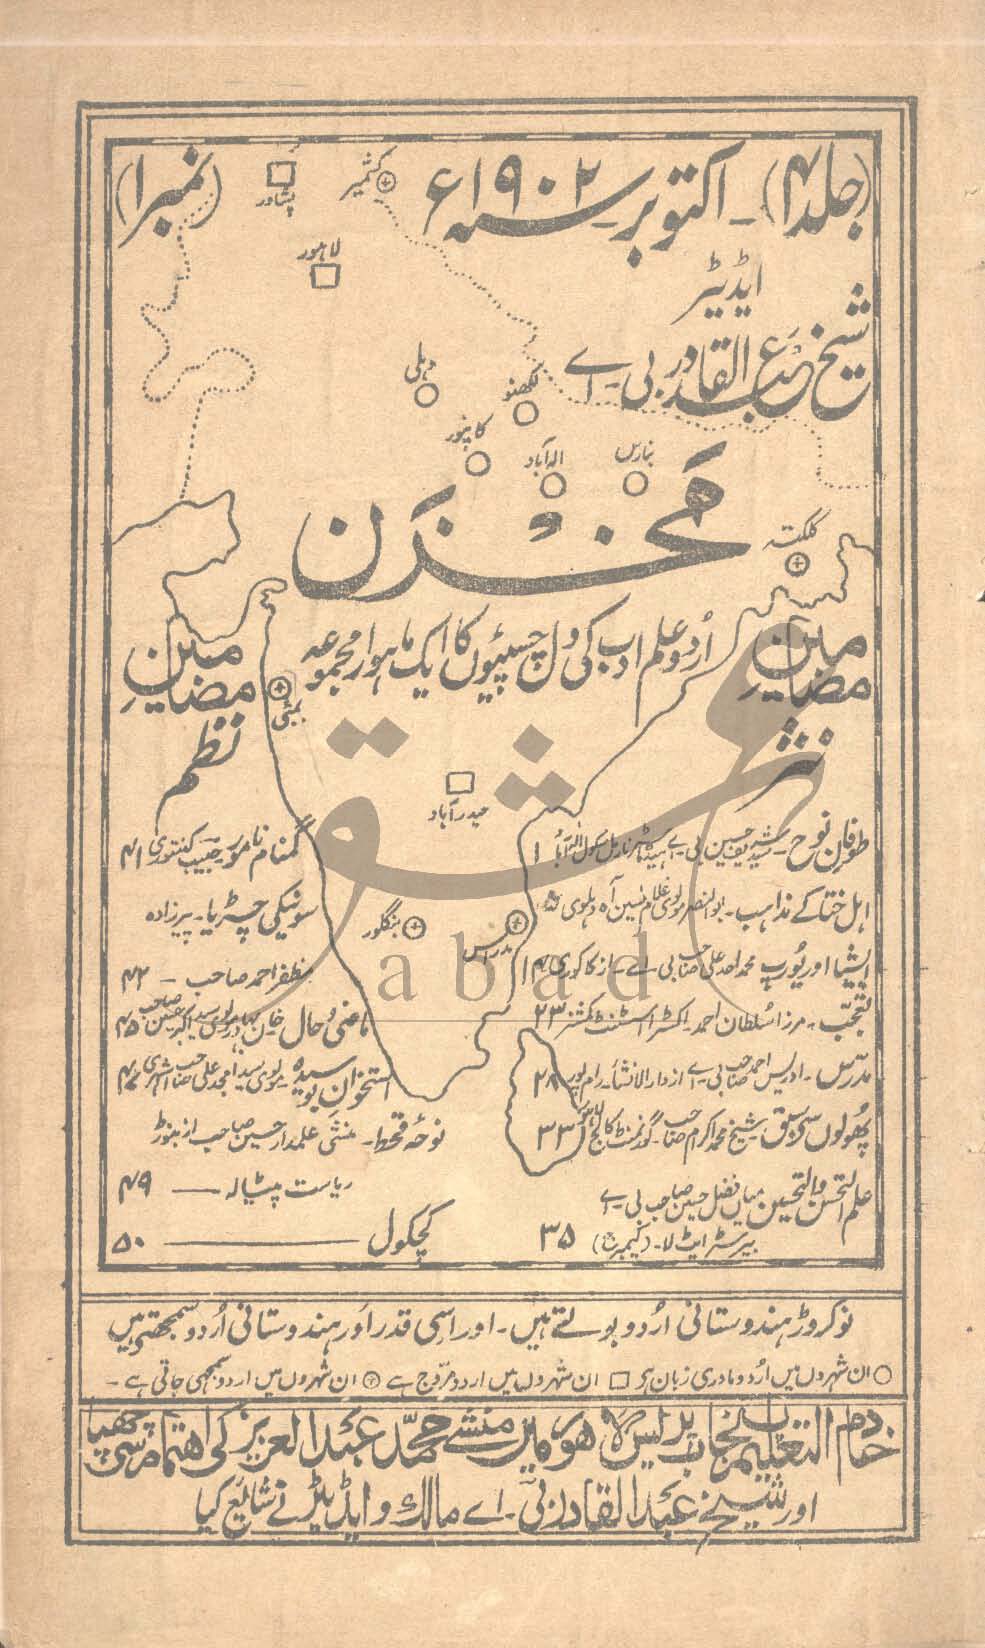 (جلد ۴) ۔ اکتوبر سنہ ۱۹۰۲ء (نمبر ۱)
پشاور
کشمیر
لاہور
ایڈیٹر
شیخ عبدالقادر بی۔ اے
دہلی
لکھنؤ
کانپور
الہ آباد
بنارس
کلکتہ
مخزن
اُردو علم ادب کی دل چسپیوں کا ایک ماہوار مجموعہ
بمبئی
حیدرآباد
بنگلور
مدراس
مضامین
نثر
طوفان نوح۔ بی۔ اے ۱
اہل ختا کے مذاہب۔ ابوالنصر مولوی غلام یٰسین آہ دہلوی
ایشیا اور یورپ محمد احد علی صاحب بی۔ اے۔ از کاکوری ۱۴
تعجب۔ مرزا سلطان احمد۔ اکسٹرا اسسٹنٹ کمشنر ۲۳
مدرس۔ ادریس احمد صاحب بی۔ اے از دارالانشاء۔ رام پور ۲۸
پھولوں سے سبق شیخ محمد اکرم صاحب۔ گورنمنٹ کالج لاہور ۳۳
علم التحسن والتحسین میاں فضل حسین صاحب بی۔ اے
بیرسٹر ایٹ لا۔ (کیمبرج) ۳۵
مضامین
نظم
گمنام نامور۔ حبیب کنتوری ۴۱
سونیکی چڑیا۔ پیرزادہ
مظفر احمد صاحب ۔ ۴۲
ماضی و حال خان بہادر مولوی سید اکبر حسین صاحب ۴۵
استخوان بوسیدہ۔ مولوی سید امجد علی صاحب اشہری ۴۷
نوحۂ قحط۔ منشی علمدار حسین صاحب از بنوڑ
ریاست پٹیالہ — ۴۹
کچکول — ۵۰
نو کروڑ ہندوستانی اُردو بولتے ہیں۔ اور اسی قدر اَور ہندوستانی اُردو سمجھتے ہیں
○ ان شہروں میں اُردو مادری زبان ہے □ ان شہروں میں اردو مروج ہے ⊕ ان شہروں میں اردو سمجھی جاتی ہے۔
خادم التعلیم پنجاب پریس لاہور میں منشی محمد عبدالعزیز کی اہتمام سے چھپا
اور شیخ عبدالقادر بی۔ اے مالک و ایڈیٹر نے شائع کیا
عشق
abad